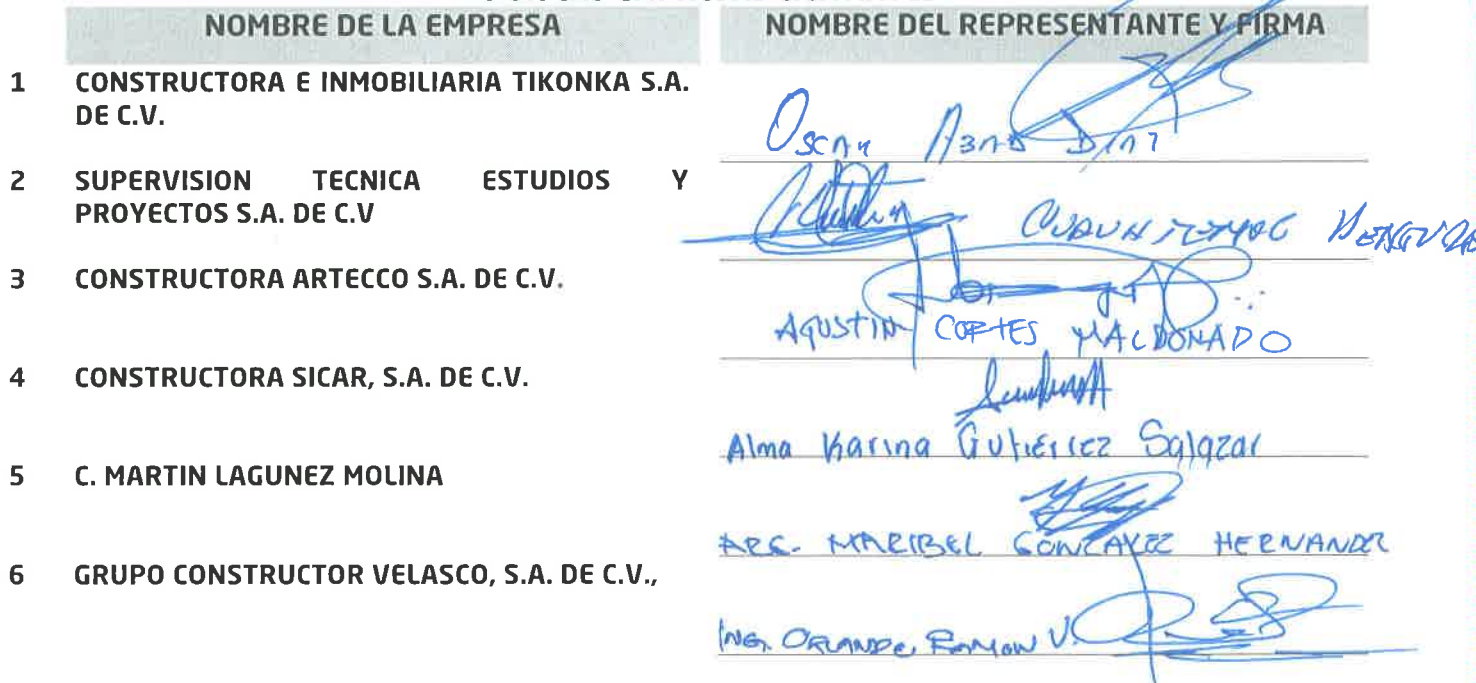 NOMBRE DE LA EMPRESA NOMBRE DEL REPRESENTANTE Y FIRMA
1 CONSTRUCTORA E INMOBILIARIA TIKONKA S.A.
DE C.V.
Oscar Abad Diaz
2 SUPERVISION TECNICA ESTUDIOS Y
PROYECTOS S.A. DE C.V
CUAUHTEMOC
3 CONSTRUCTORA ARTECCO S.A. DE C.V.
AGUSTIN CORTES MALDONADO
4 CONSTRUCTORA SICAR, S.A. DE C.V.
Alma Karina Gutiérrez Salazar
5 C. MARTIN LAGUNEZ MOLINA
ARQ. MARIBEL GONZALEZ HERNANDEZ
6 GRUPO CONSTRUCTOR VELASCO, S.A. DE C.V.,
ING. ORLANDO RAMON V.